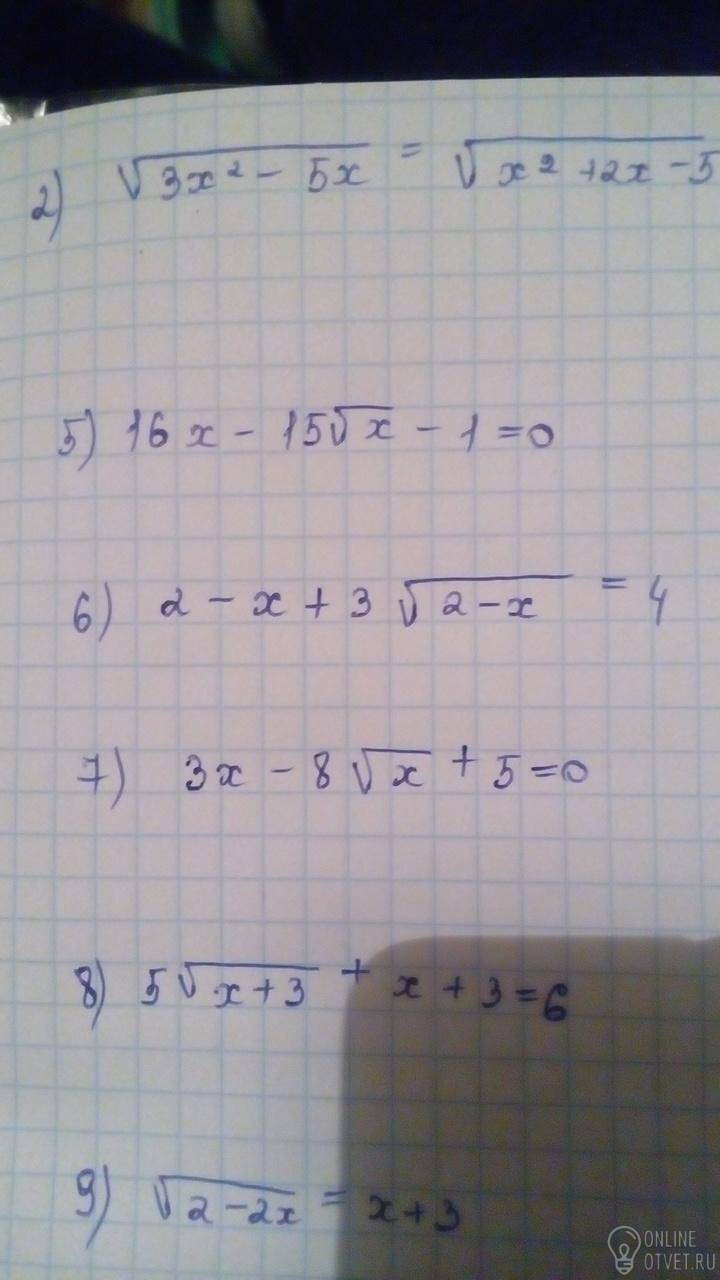 2) √(3x² - 5x) = √(x² + 2x - 5
5) 16x - 15√x - 1 = 0
6) 2 - x + 3√(2 - x) = 4
7) 3x - 8√x + 5 = 0
8) 5√(x + 3) + x + 3 = 6
9) √(2 - 2x) = x + 3
ONLINE
OTVET.RU